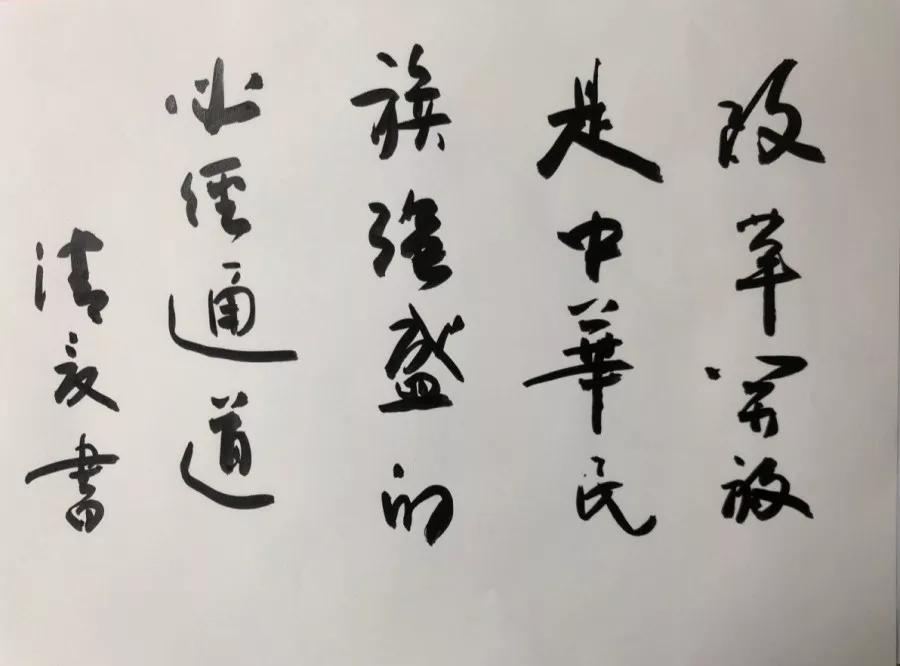 改革開放
是中華民
族強盛的
必經通道
清友書